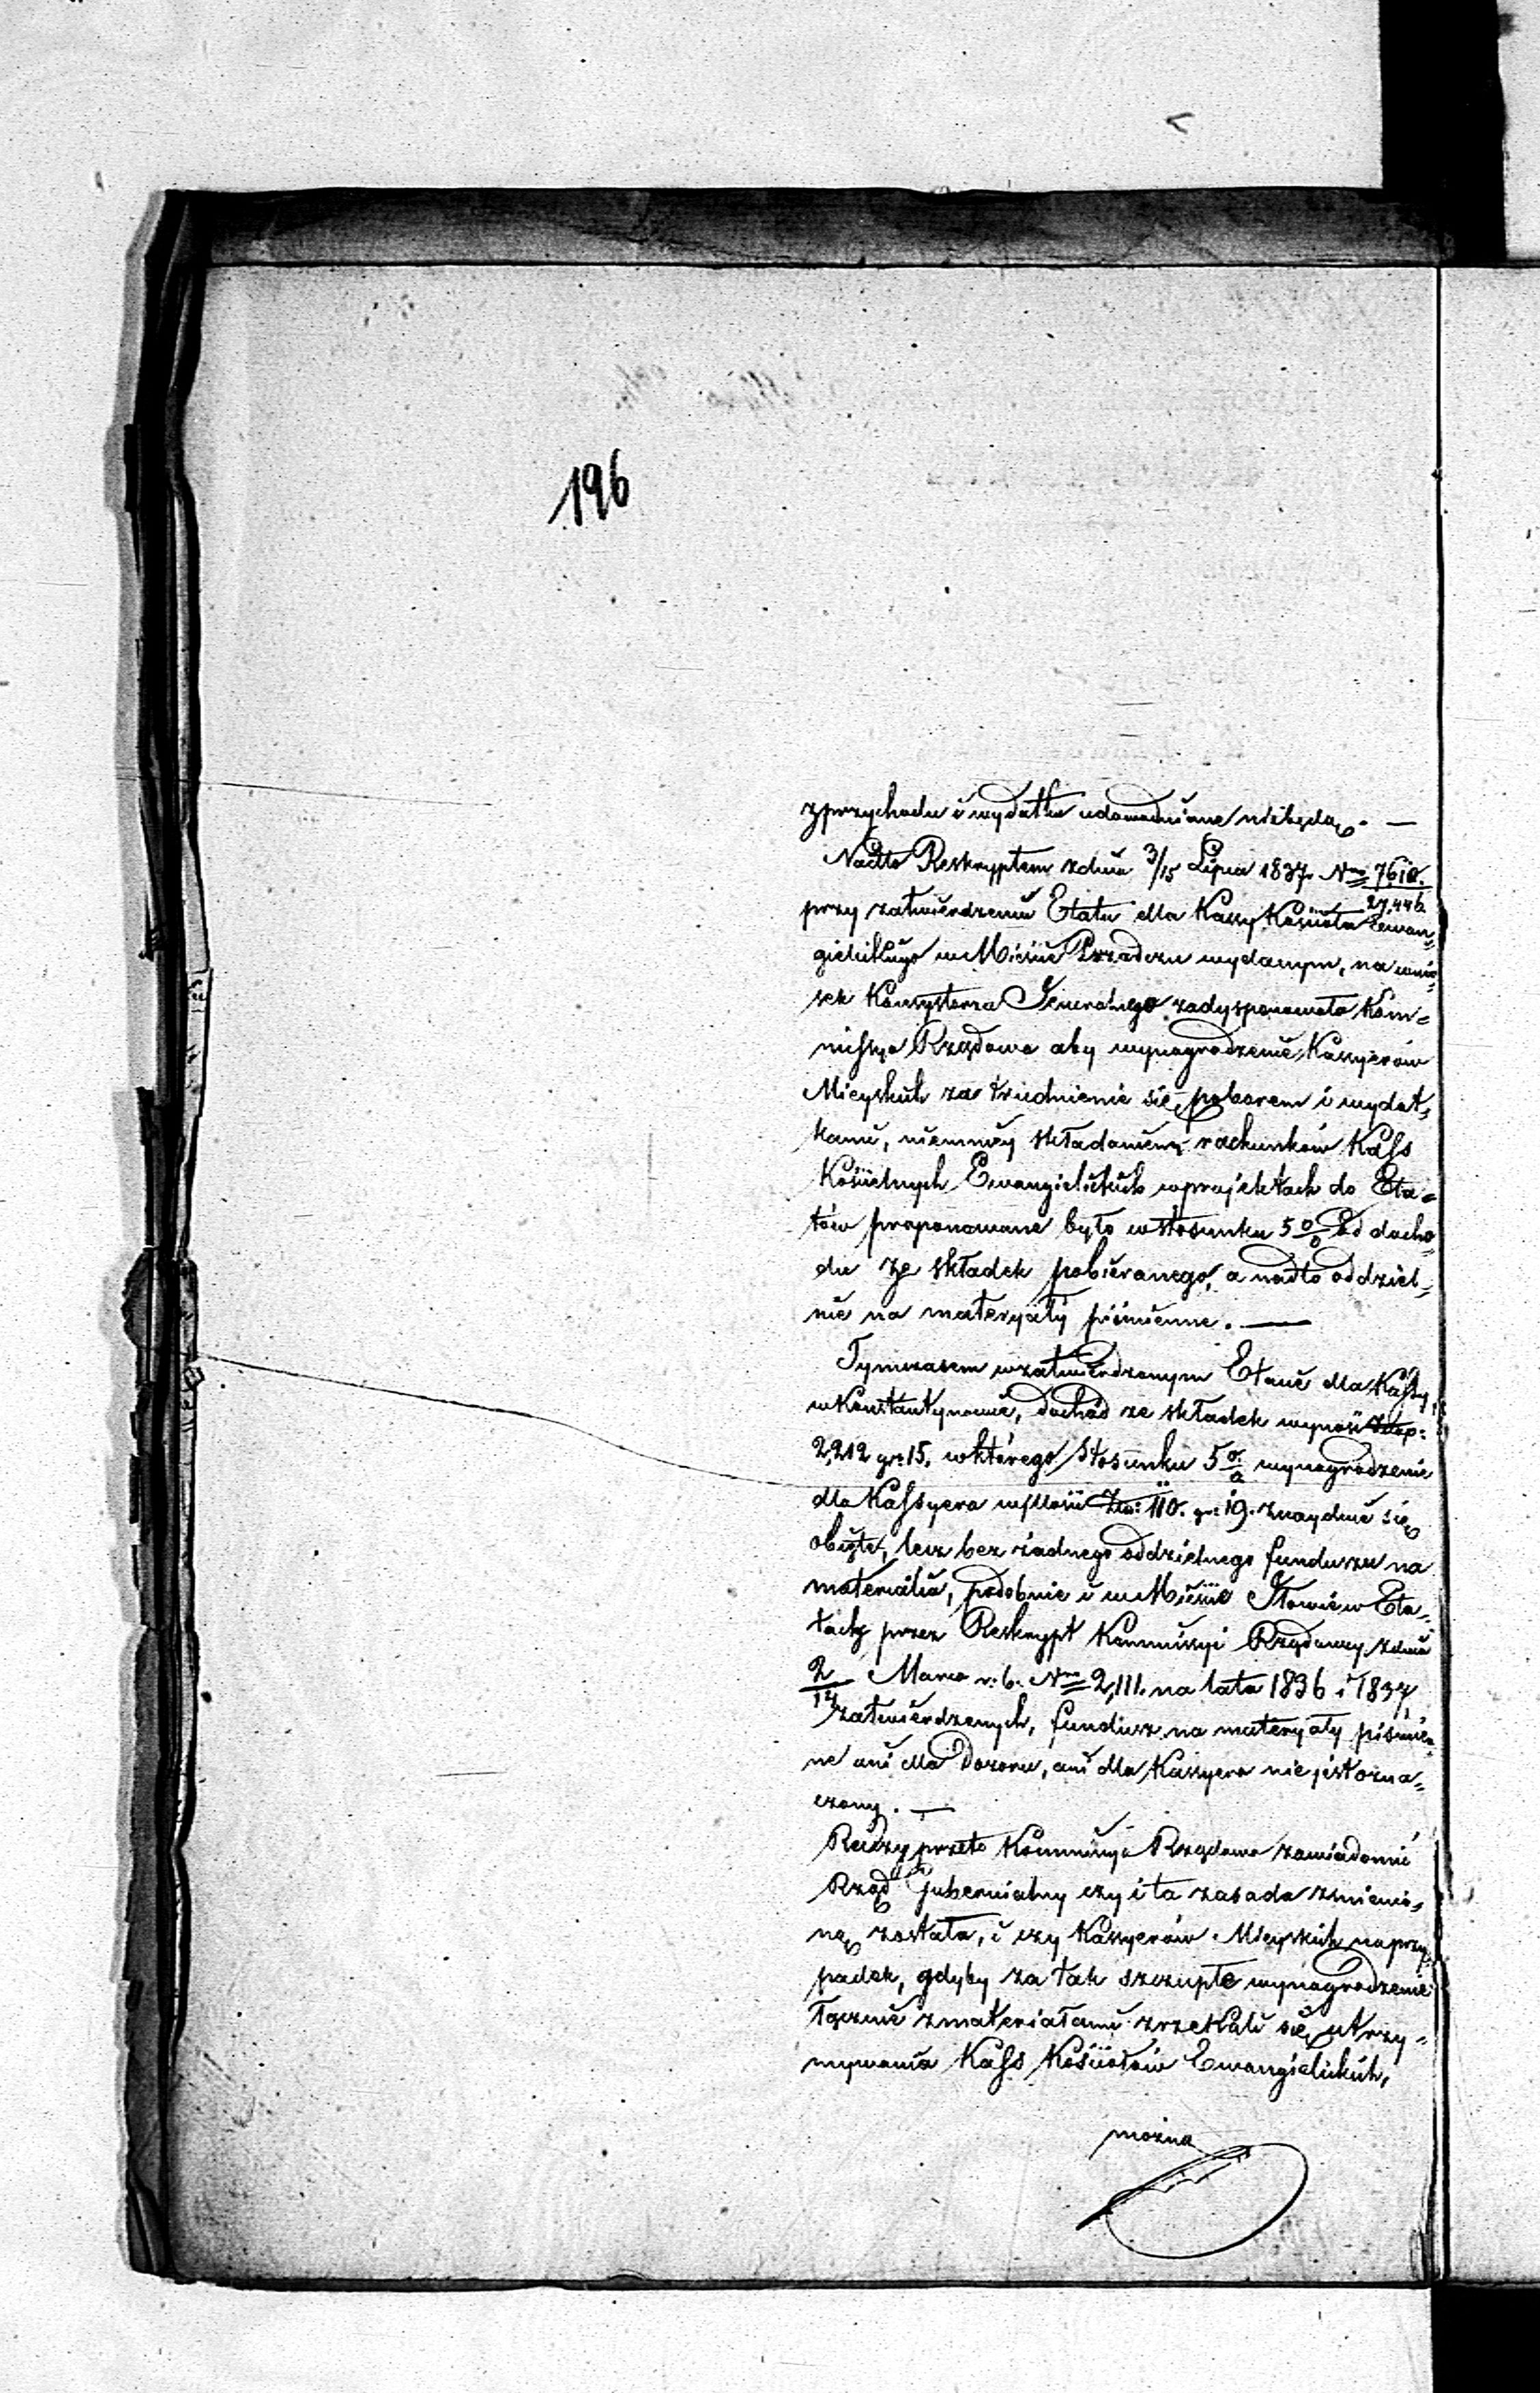 196
z przychodu i wydatku udowodnione niebędą. —
Nadto Reskryptem zdnia 3/15 Lipca 1837. Nro 7610.
27,446
przy zatwierdzeniu Etatu dla Kassy Kościoła Ewan=
gielickiego w Mieście Przedczu wydanym, na wnio=
sek Konsystorza Generalnego zadysponowała Kom=
missya Rządowa aby wynagrodzenie Kassyerów
Mieyskich za trudnienie się poborem i wydat=
kami, niemniey składaniem rachunków Kass
Kościelnych Ewangielickich w projektach do Eta=
tów proponowane było w stosunku 5 % od docho=
du ze składek pobieranego, a nadto oddziel=
nie na materyały piśmienne. —
Tymczasem w zatwierdzonym Etacie dla Kassy
w Konstantynowie, dochód ze składek wynosi Złop:
2,212 gr: 15. w którego stosunku 5 % wynagrodzenie
dla Kassyera w Ilości Złp: 110. gr: 19. znayduie się
obięte, lecz bez żadnego oddzielnego funduszu na
materialia, podobnie i w Mieście Iłowie w Eta=
tach przez Reskrypt Kommissyi Rządowey zdnia
2/14 Marca r: b: Nro 2,111. na lata 1836 i 1837
zatwierdzonych, fundusz na materyały piśmien=
ne ani dla Dozoru, ani dla Kassyera nie jest ozna=
czony. —
Raczy przeto Kommissya Rządowa zawiadomić
Rząd Gubernialny czy i ta zasada zmienio=
ną została, i czy Kassyerów Mieyskich na przy=
padek, gdyby za tak szczupłe wynagrodzenie
łącznie z materiałami zrzekali się utrzy=
mywania Kass Kościołów Ewangielickich,
można